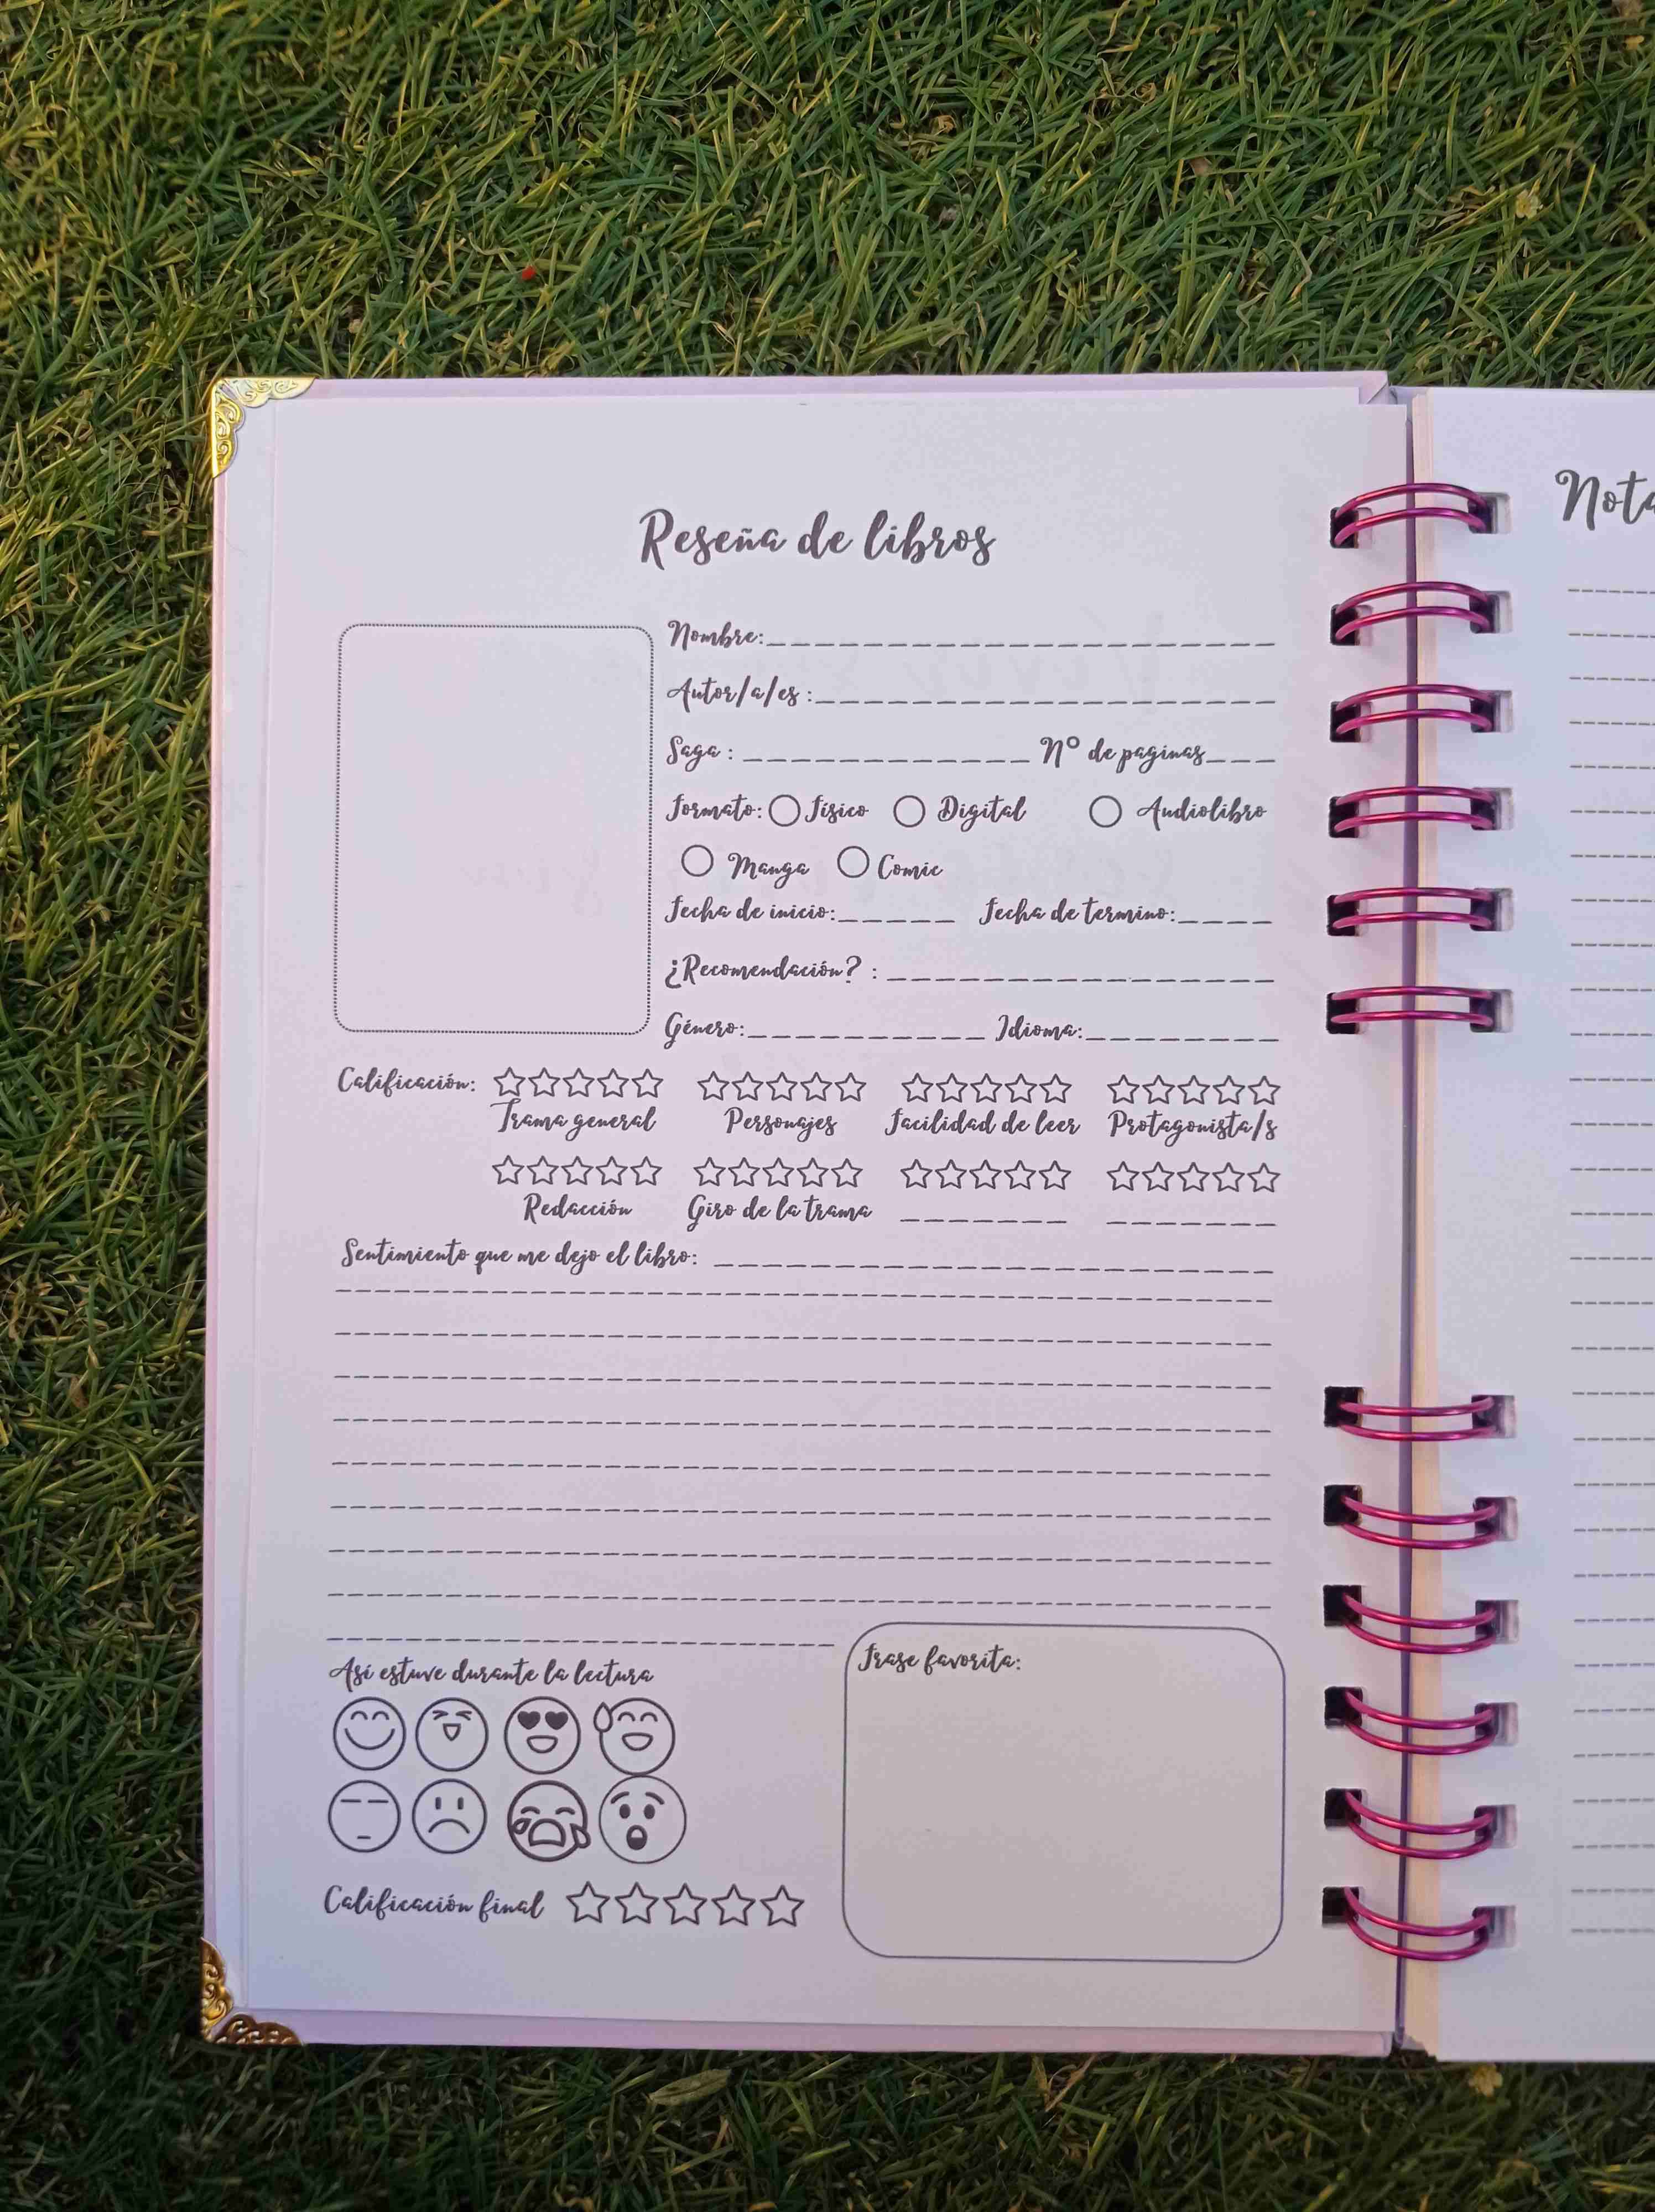 Reseña de libros
Nombre:
Autor/a/es :
Saga : Nº de paginas
Formato: Físico Digital Audiolibro
Manga Comic
Fecha de inicio: Fecha de termino:
¿Recomendación? :
Género: Idioma:
Calificación:
Trama general Personajes Facilidad de leer Protagonista/s
Redacción Giro de la trama
Sentimiento que me dejo el libro:
Frase favorita:
Así estuve durante la lectura
Calificación final